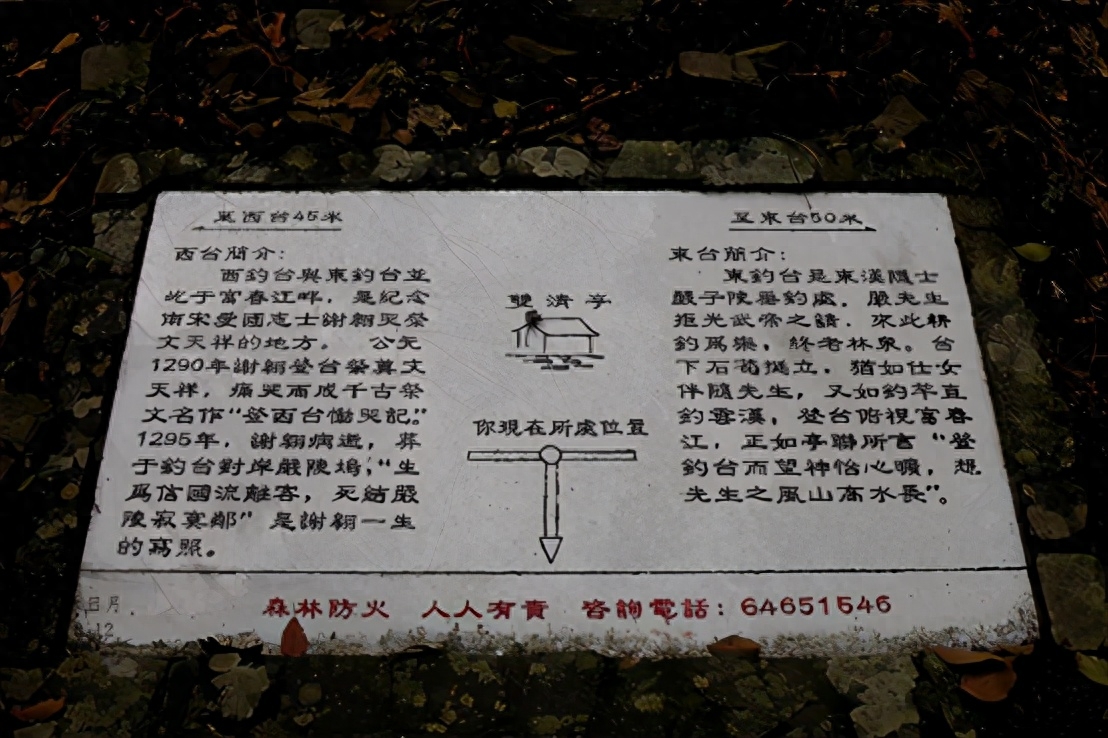 至西台45米
西台簡介:
西釣台與東釣台並
屹于富春江畔，是紀念
南宋愛國志士謝翱哭祭
文天祥的地方。 公元
1290年謝翱登台祭奠文
天祥，痛哭而成千古祭
文名作“登西台慟哭記。”
1295年，謝翱病逝，葬
于釣台對岸嚴陵塢，“生
爲信國流離客，死結嚴
陵寂寞鄰”是謝翱一生
的寫照。
雙清亭
你現在所處位置
至東台50米
東台簡介:
東釣台是東漢隱士
嚴子陵垂釣處。嚴先生
拒光武帝之請，來此耕
釣爲樂，終老林泉。台
下石筍挺立，猶如仕女
伴隨先生，又如釣竿直
釣雲漢，登台俯視富春
江，正如亭聯所言“登
釣台而望神怡心曠，想
先生之風山高水長”。
森林防火 人人有責 咨詢電話: 64651546
日月.
12